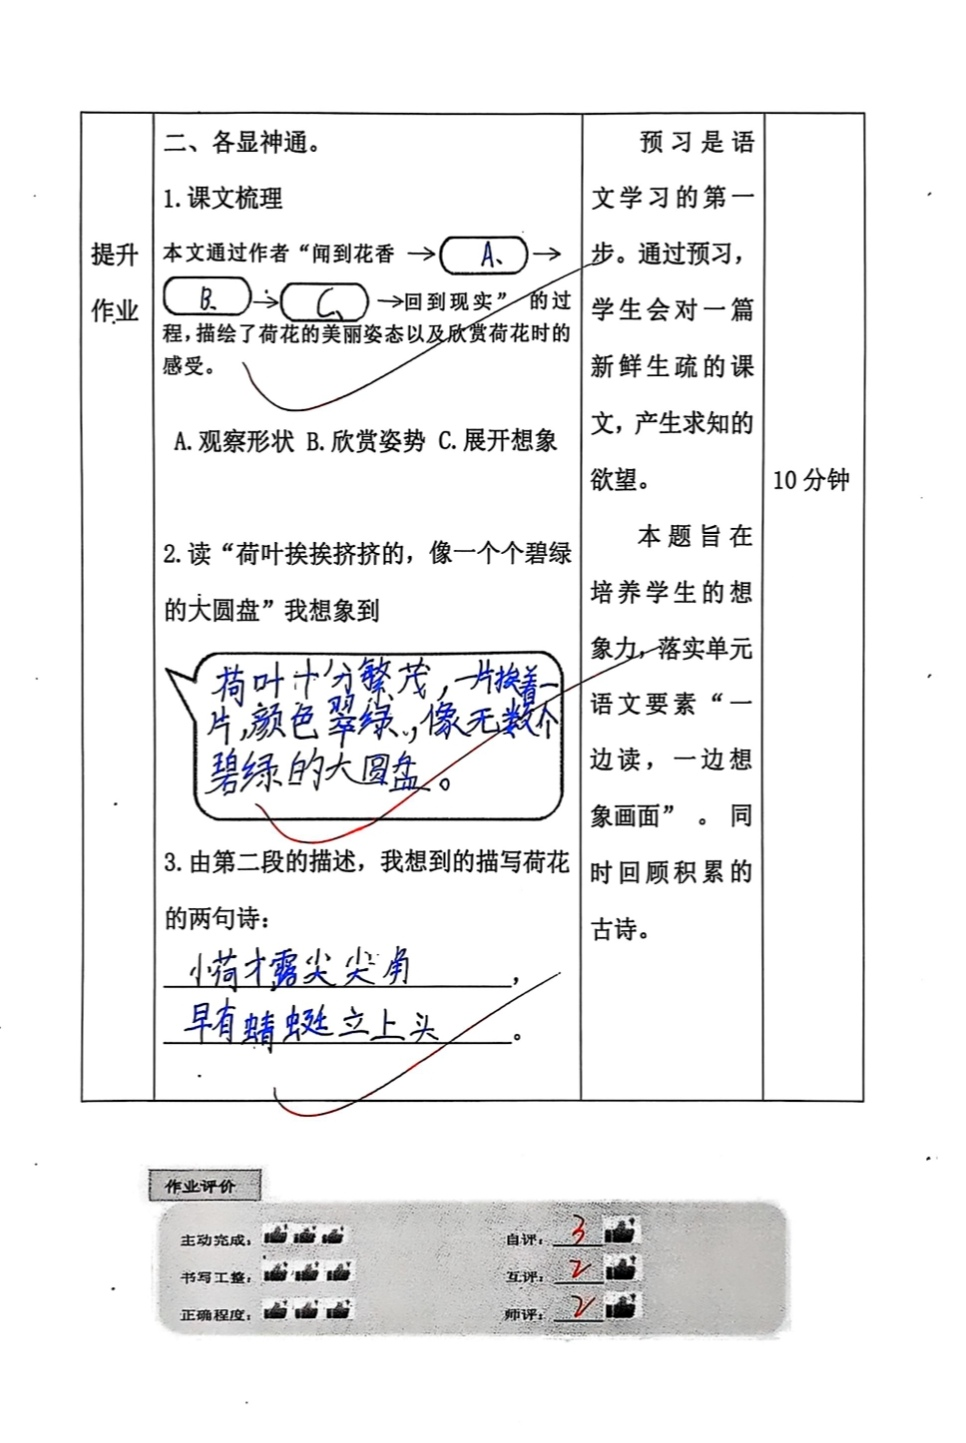 提升
作业
二、各显神通。
1.课文梳理
本文通过作者“闻到花香 → A、 →
B、 → C、 →回到现实” 的过
程,描绘了荷花的美丽姿态以及欣赏荷花时的
感受。
A.观察形状 B.欣赏姿势 C.展开想象
2.读“荷叶挨挨挤挤的，像一个个碧绿
的大圆盘”我想象到
荷叶十分繁茂，一片挨着一
片，颜色翠绿，像无数个
碧绿的大圆盘。
3.由第二段的描述，我想到的描写荷花
的两句诗：
小荷才露尖尖角，
早有蜻蜓立上头。
预习是语
文学习的第一
步。通过预习，
学生会对一篇
新鲜生疏的课
文，产生求知的
欲望。
本题旨在
培养学生的想
象力，落实单元
语文要素“一
边读，一边想
象画面”。同
时回顾积累的
古诗。
10分钟
作业评价
主动完成： 自评：3
书写工整： 互评：2
正确程度： 师评：2